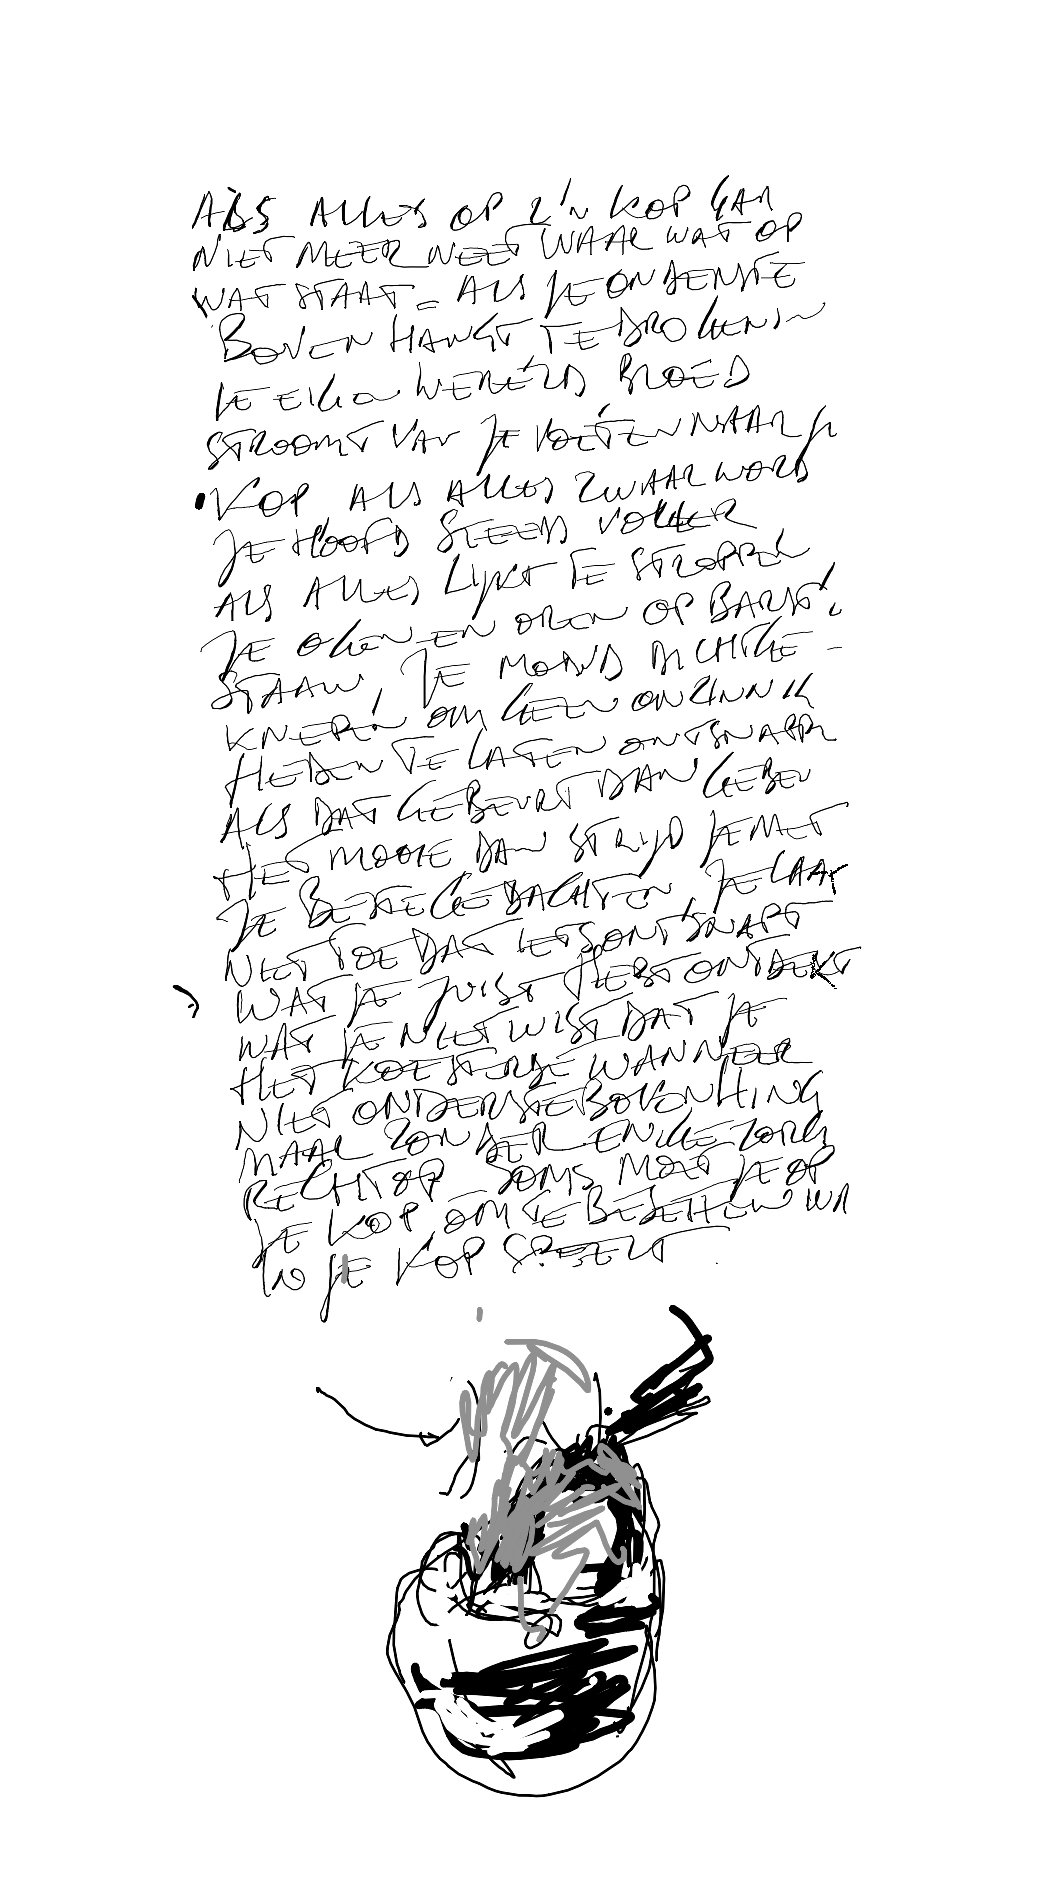 ALS ALLES OP Z'N KOP GAA
NIET MEER WEET WAAR WAT OP
WAT STAAT - ALS JE ONDERSTE
BOVEN HANGT TE DROGEN IN
JE EIGEN WERELD BLOED
STROOMT VAN JE VOETEN NAAR JE
KOP ALS ALLES ZWAAR WORD
JE HOOFD STEEDS VOLLER
ALS ALLES LIJKT TE STOPPEN
JE OGEN EN OREN OP BARST
STAAN, JE MOND DICHTGE-
KNEPEN OM GEEN ONZINNIG
HEDEN TE LATEN ONTSNAPPE
ALS DAT GEBEURT DAN GEBEU
HET MOOIE DAN STRIJD JE MET
JE BESTE GEDACHTEN JE LAAT
NIET TOE DAT IETS ONTSNAPT
WAT JE JUIST HEBT ONTDEKT
WAT JE NIET WIST DAT JE
HET KOESTERDE WANNEER
NIET ONDERSTEBOVEN HING
MAAR ZONDER ENIGE ZORG
RECHTOP SOMS MOET JE OP
JE KOP OM TE BESEFFEN WA
IN JE KOP SPEELT